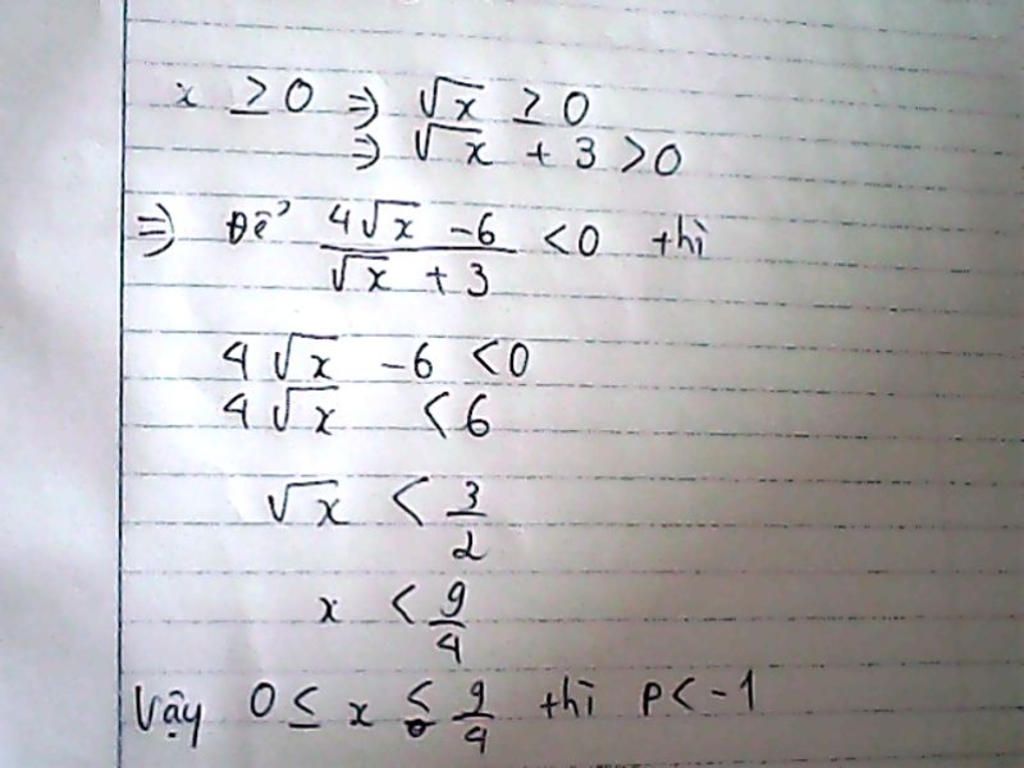 x ≥ 0 ⇒ √x ≥ 0
⇒ √x + 3 > 0
⇒ Để (4√x - 6)/(√x + 3) < 0 thì
4√x - 6 < 0
4√x < 6
√x < 3/2
x < 9/4
Vậy 0 ≤ x < 9/4 thì P < -1